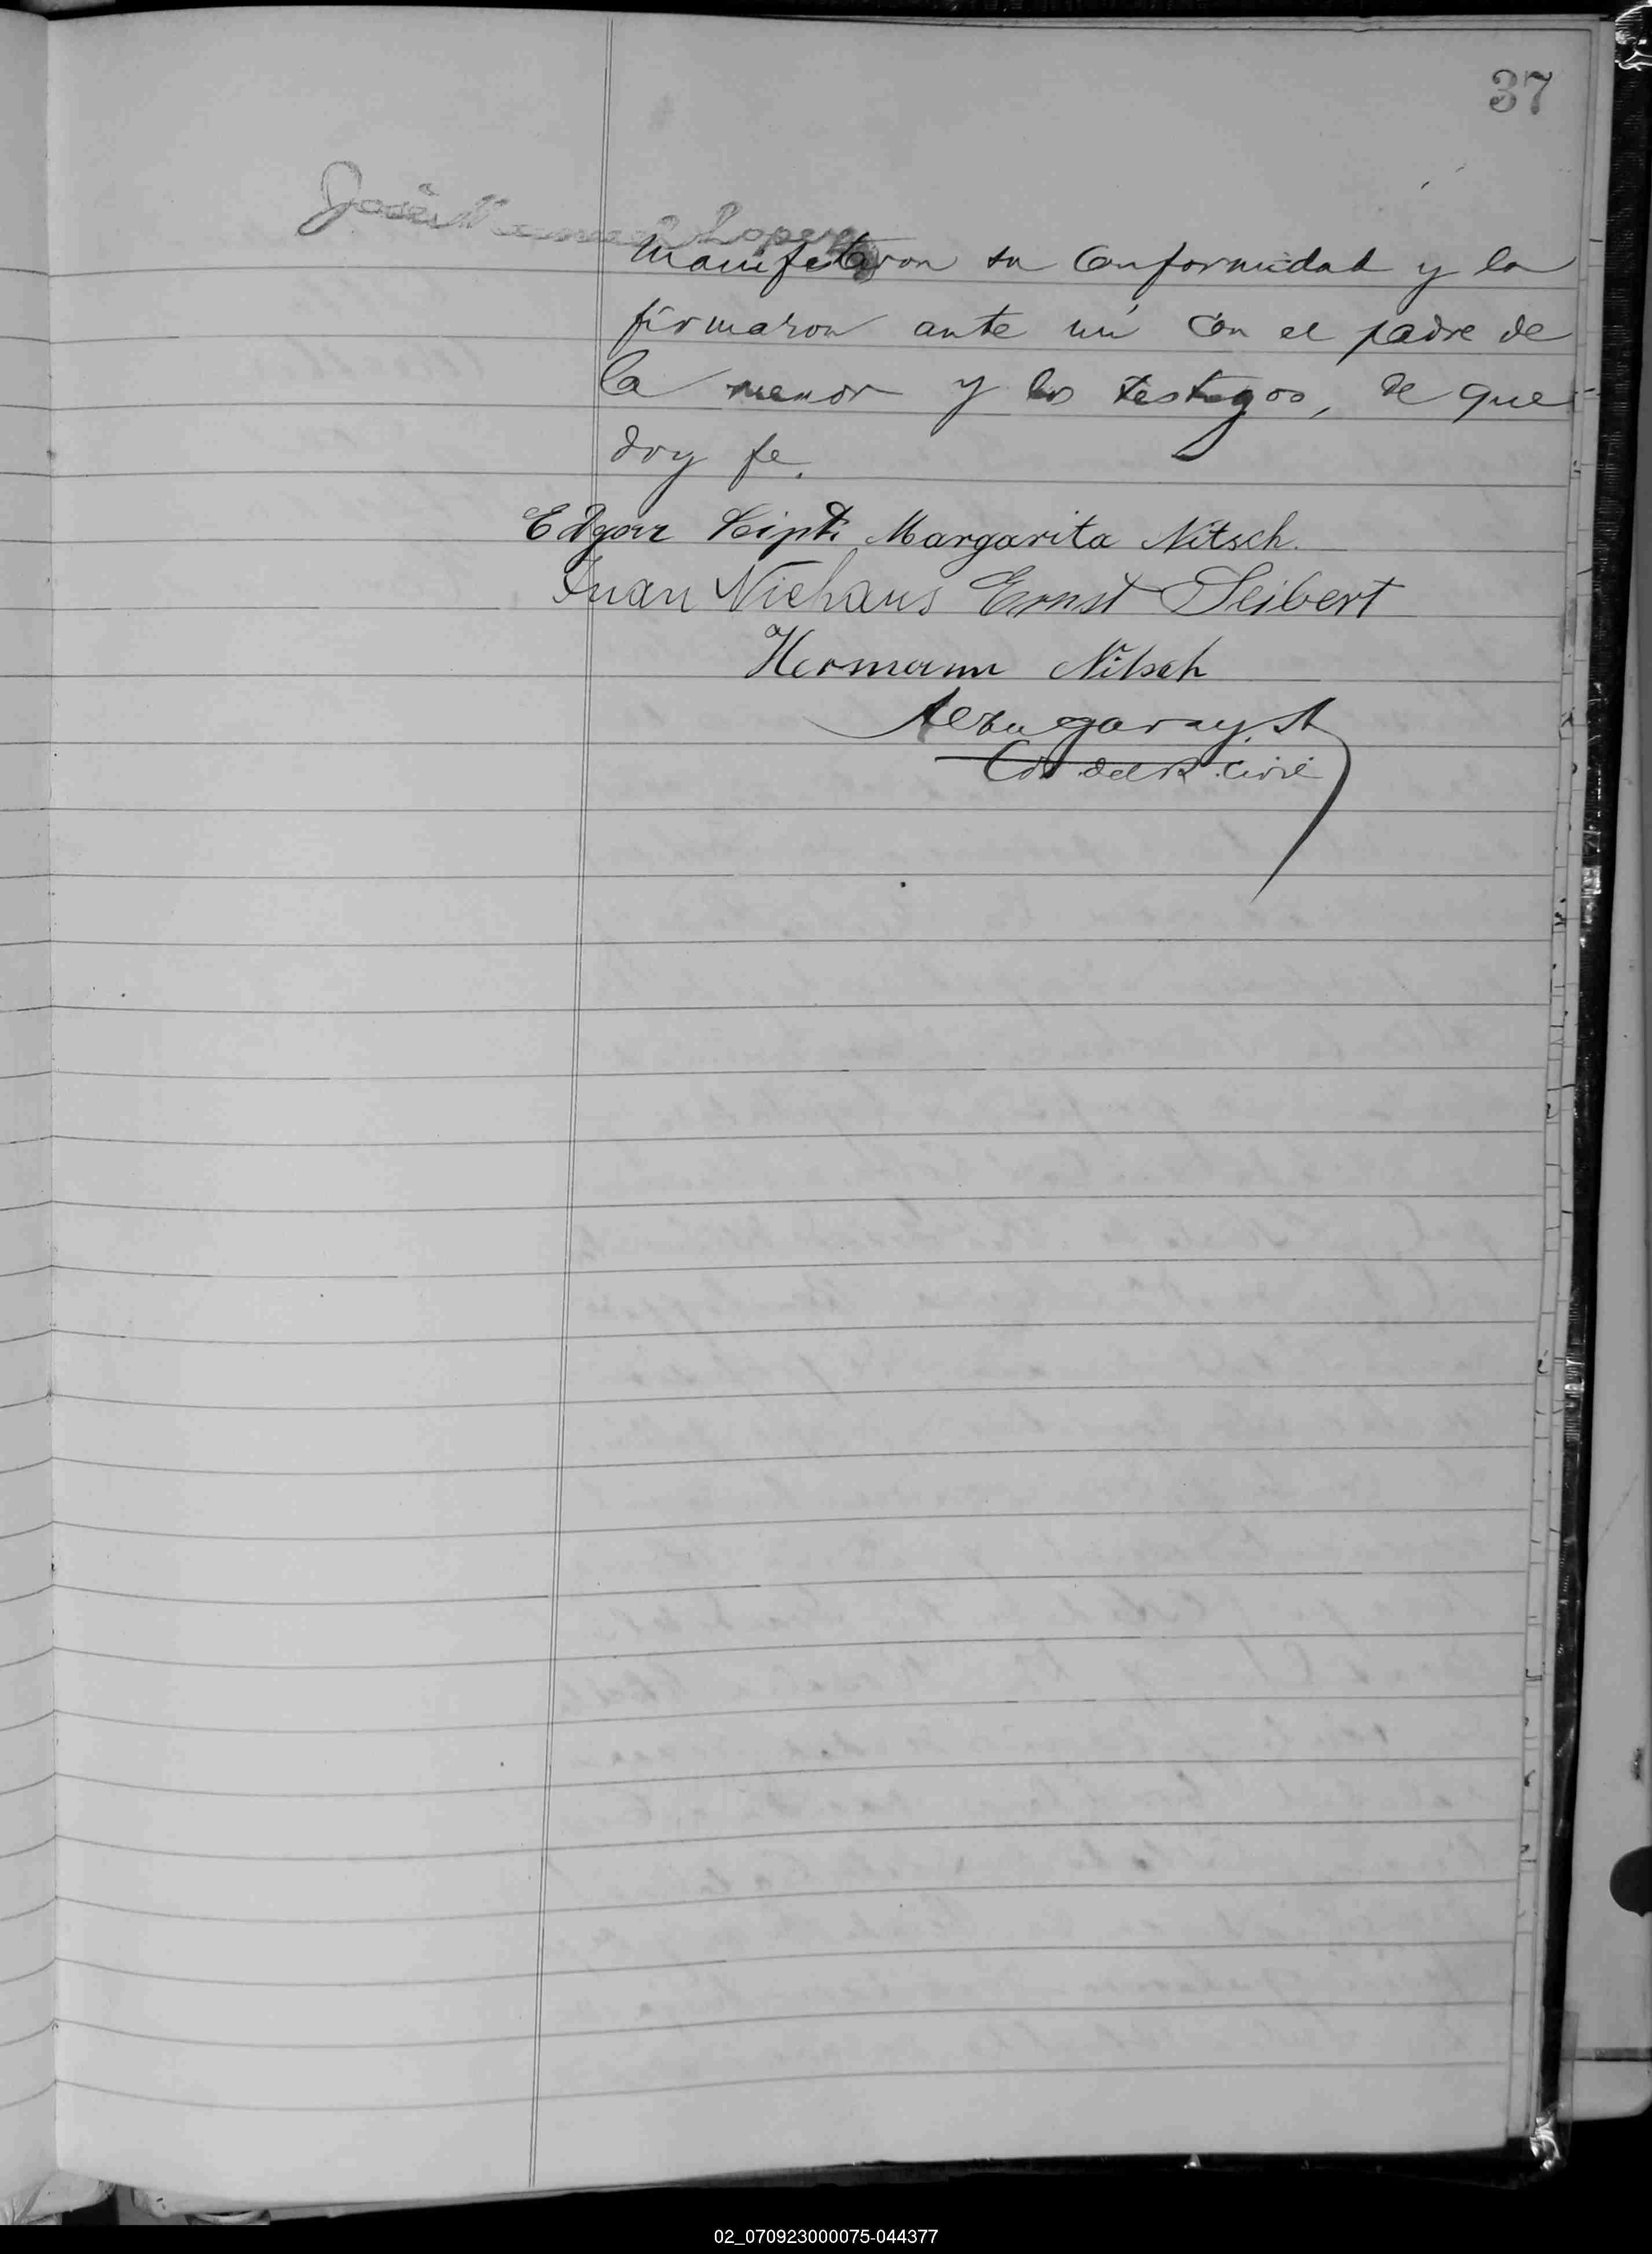 37
José Manuel Lopez
Manifestaron su conformidad y la
firmaron ante mi con el padre de
la menor y los testigos, de que
doy fe.
Edgar Margarita Nitsch.
Juan Niehaus Ernst Seibert
Hermann Nitsch
del R. Civil
02_070923000075-044377